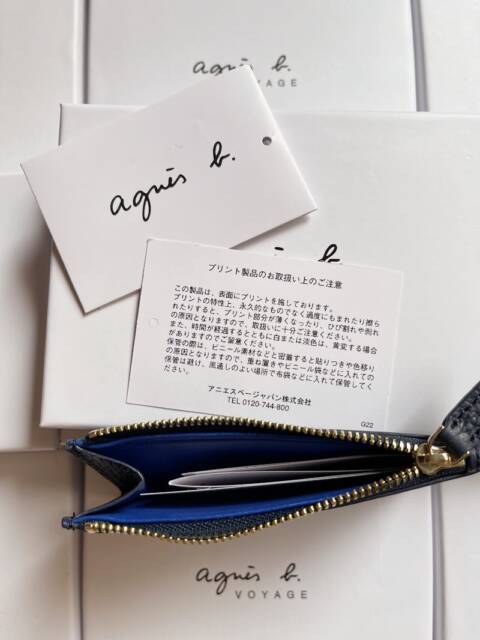 agnès b.
VOYAGE
agnès b.
プリント製品のお取扱い上のご注意
この製品は、表面にプリントを施しております。
プリントの特性上、永久的なものでなく過度にもまれたり擦ら
れたりすると、プリント部分が薄くなったり、ひび割れや剥れ
の原因となりますので、取扱いに十分ご注意ください。
また、時間が経過するとともに白または淡色は、黄変する場合
がありますのでご留意ください。
保管の際は、ビニール素材などと密着すると貼りつきや色移り
の原因となりますので、重ね置きやビニール袋などに入れての
保管は避け、風通しのよい場所で布袋などに入れて保管してく
ださい。
アニエスベージャパン株式会社
TEL 0120-744-800
G22
agnès b.
VOYAGE